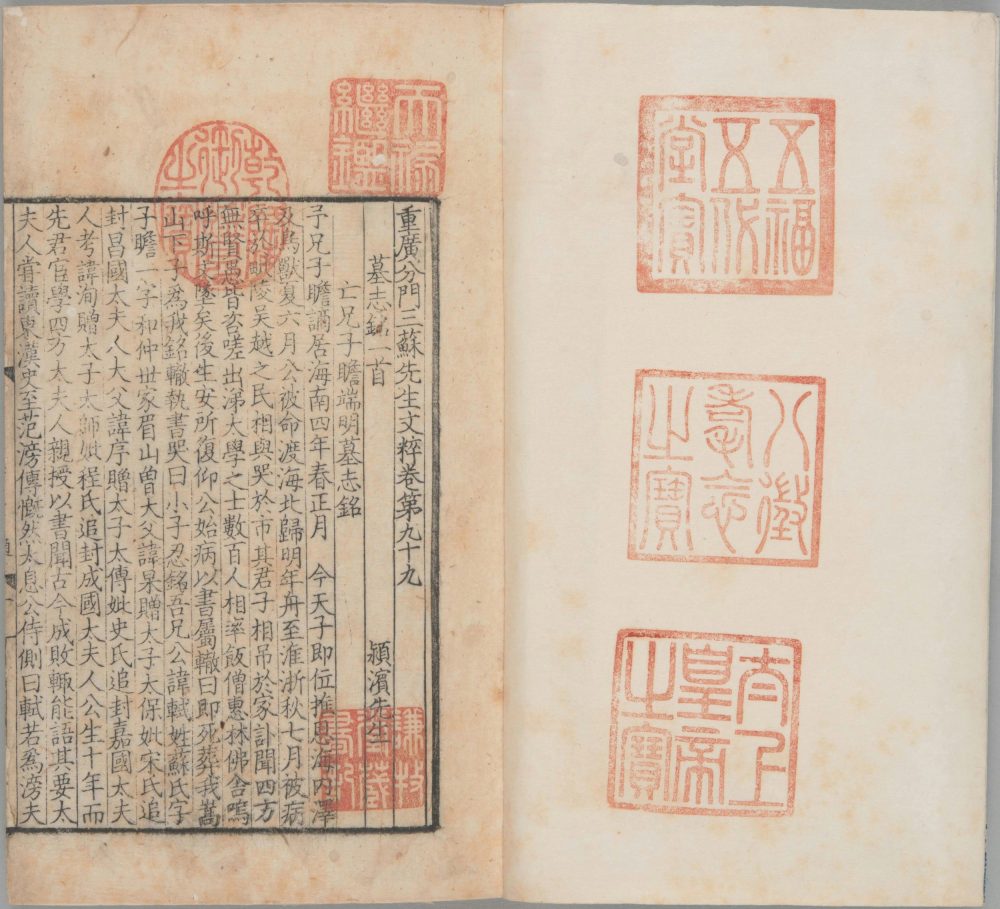 五福
五代
堂寶
八徵
耄念
之寶
太上
皇帝
之寶
天祿
繼鑑
乾隆
御覽
之寶
重廣分門三蘇先生文粹卷第九十九
潁濱先生
墓志銘一首
亡兄子瞻端明墓志銘
予兄子瞻謫居海南四年春正月 今天子即位推恩海内澤
及鳥獸夏六月公被命渡海北歸明年舟至淮浙秋七月被病
卒於毗陵吳越之民相與哭於市其君子相弔於家訃聞四方
無賢愚皆咨嗟出涕大學之士數百人相率飯僧惠林佛舍嗚
呼斯文墜矣後生安所復仰公始病以書屬轍曰即死葬我嵩
山下子爲我銘轍執書哭曰小子忍銘吾兄公諱軾姓蘇氏字
子瞻一字和仲世家眉山曾大父諱杲贈太子太保妣宋氏追
封昌國太夫人大父諱序贈太子太傅妣史氏追封嘉國太夫
人考諱洵贈太子太師妣程氏追封成國太夫人公生十年而
先君宦學四方太夫人親授以書聞古今成敗輒能語其要太
夫人嘗讀東漢史至范滂傳慨然太息公侍側曰軾若爲滂夫
謙牧
堂藏
書記